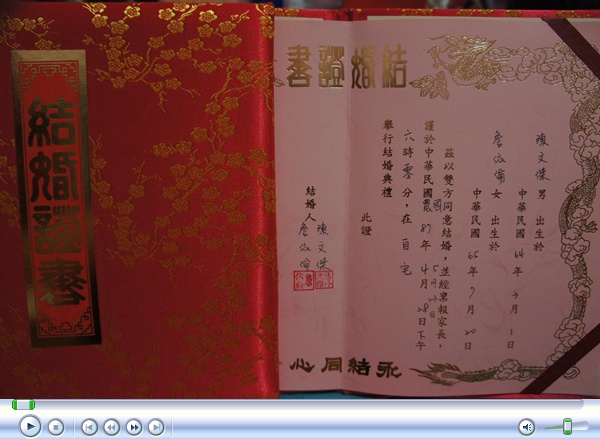 結婚證書
結婚證書
陳文 男 出生於
中華民國 64年 月1日
詹 女 出生於
中華民國 65年9月20日
茲以雙方同意結婚,並經稟報家長,
謹於中華民國 國 87年5月 日
農 4月28日下午
六時零分,在自宅
舉行結婚典禮
此證
結婚人
陳文
詹
永結同心